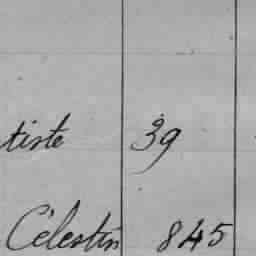 tiste 39
Célestin 845